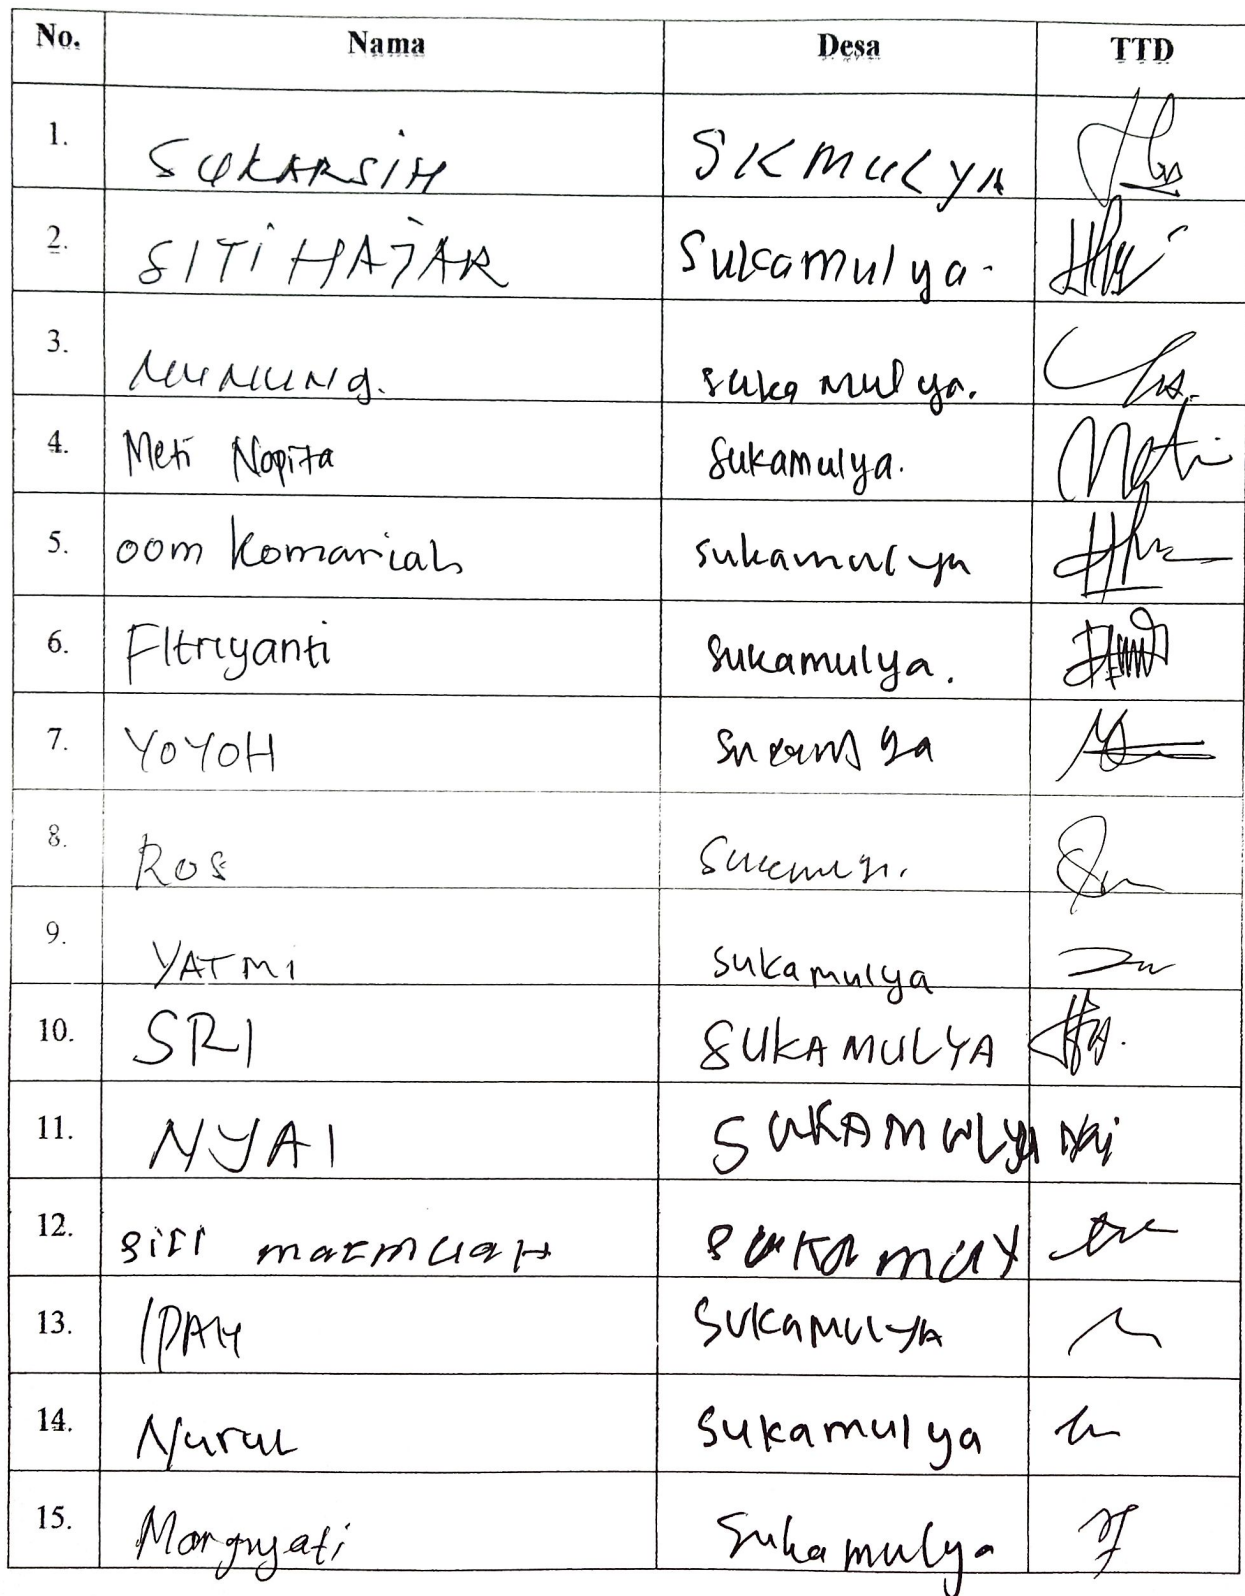 No. Nama Desa TTD
1. SUKARSIH SKMULYA
2. SITI HAJAR Sukamulya.
3. NUNUNG. suka mulya.
4. Meti Nopita Sukamulya. Meti
5. oom komariah sukamulya
6. FItriyanti Sukamulya.
7. YOYOH
8. Ros
9. YATMI sukamulya
10. SRI SUKA MULYA
11. NYAI SUKAMULYA
12. siti SUKA MUY
13. IPAH SUKAMULYA
14. Nurul Sukamulya
15. Sukamulya